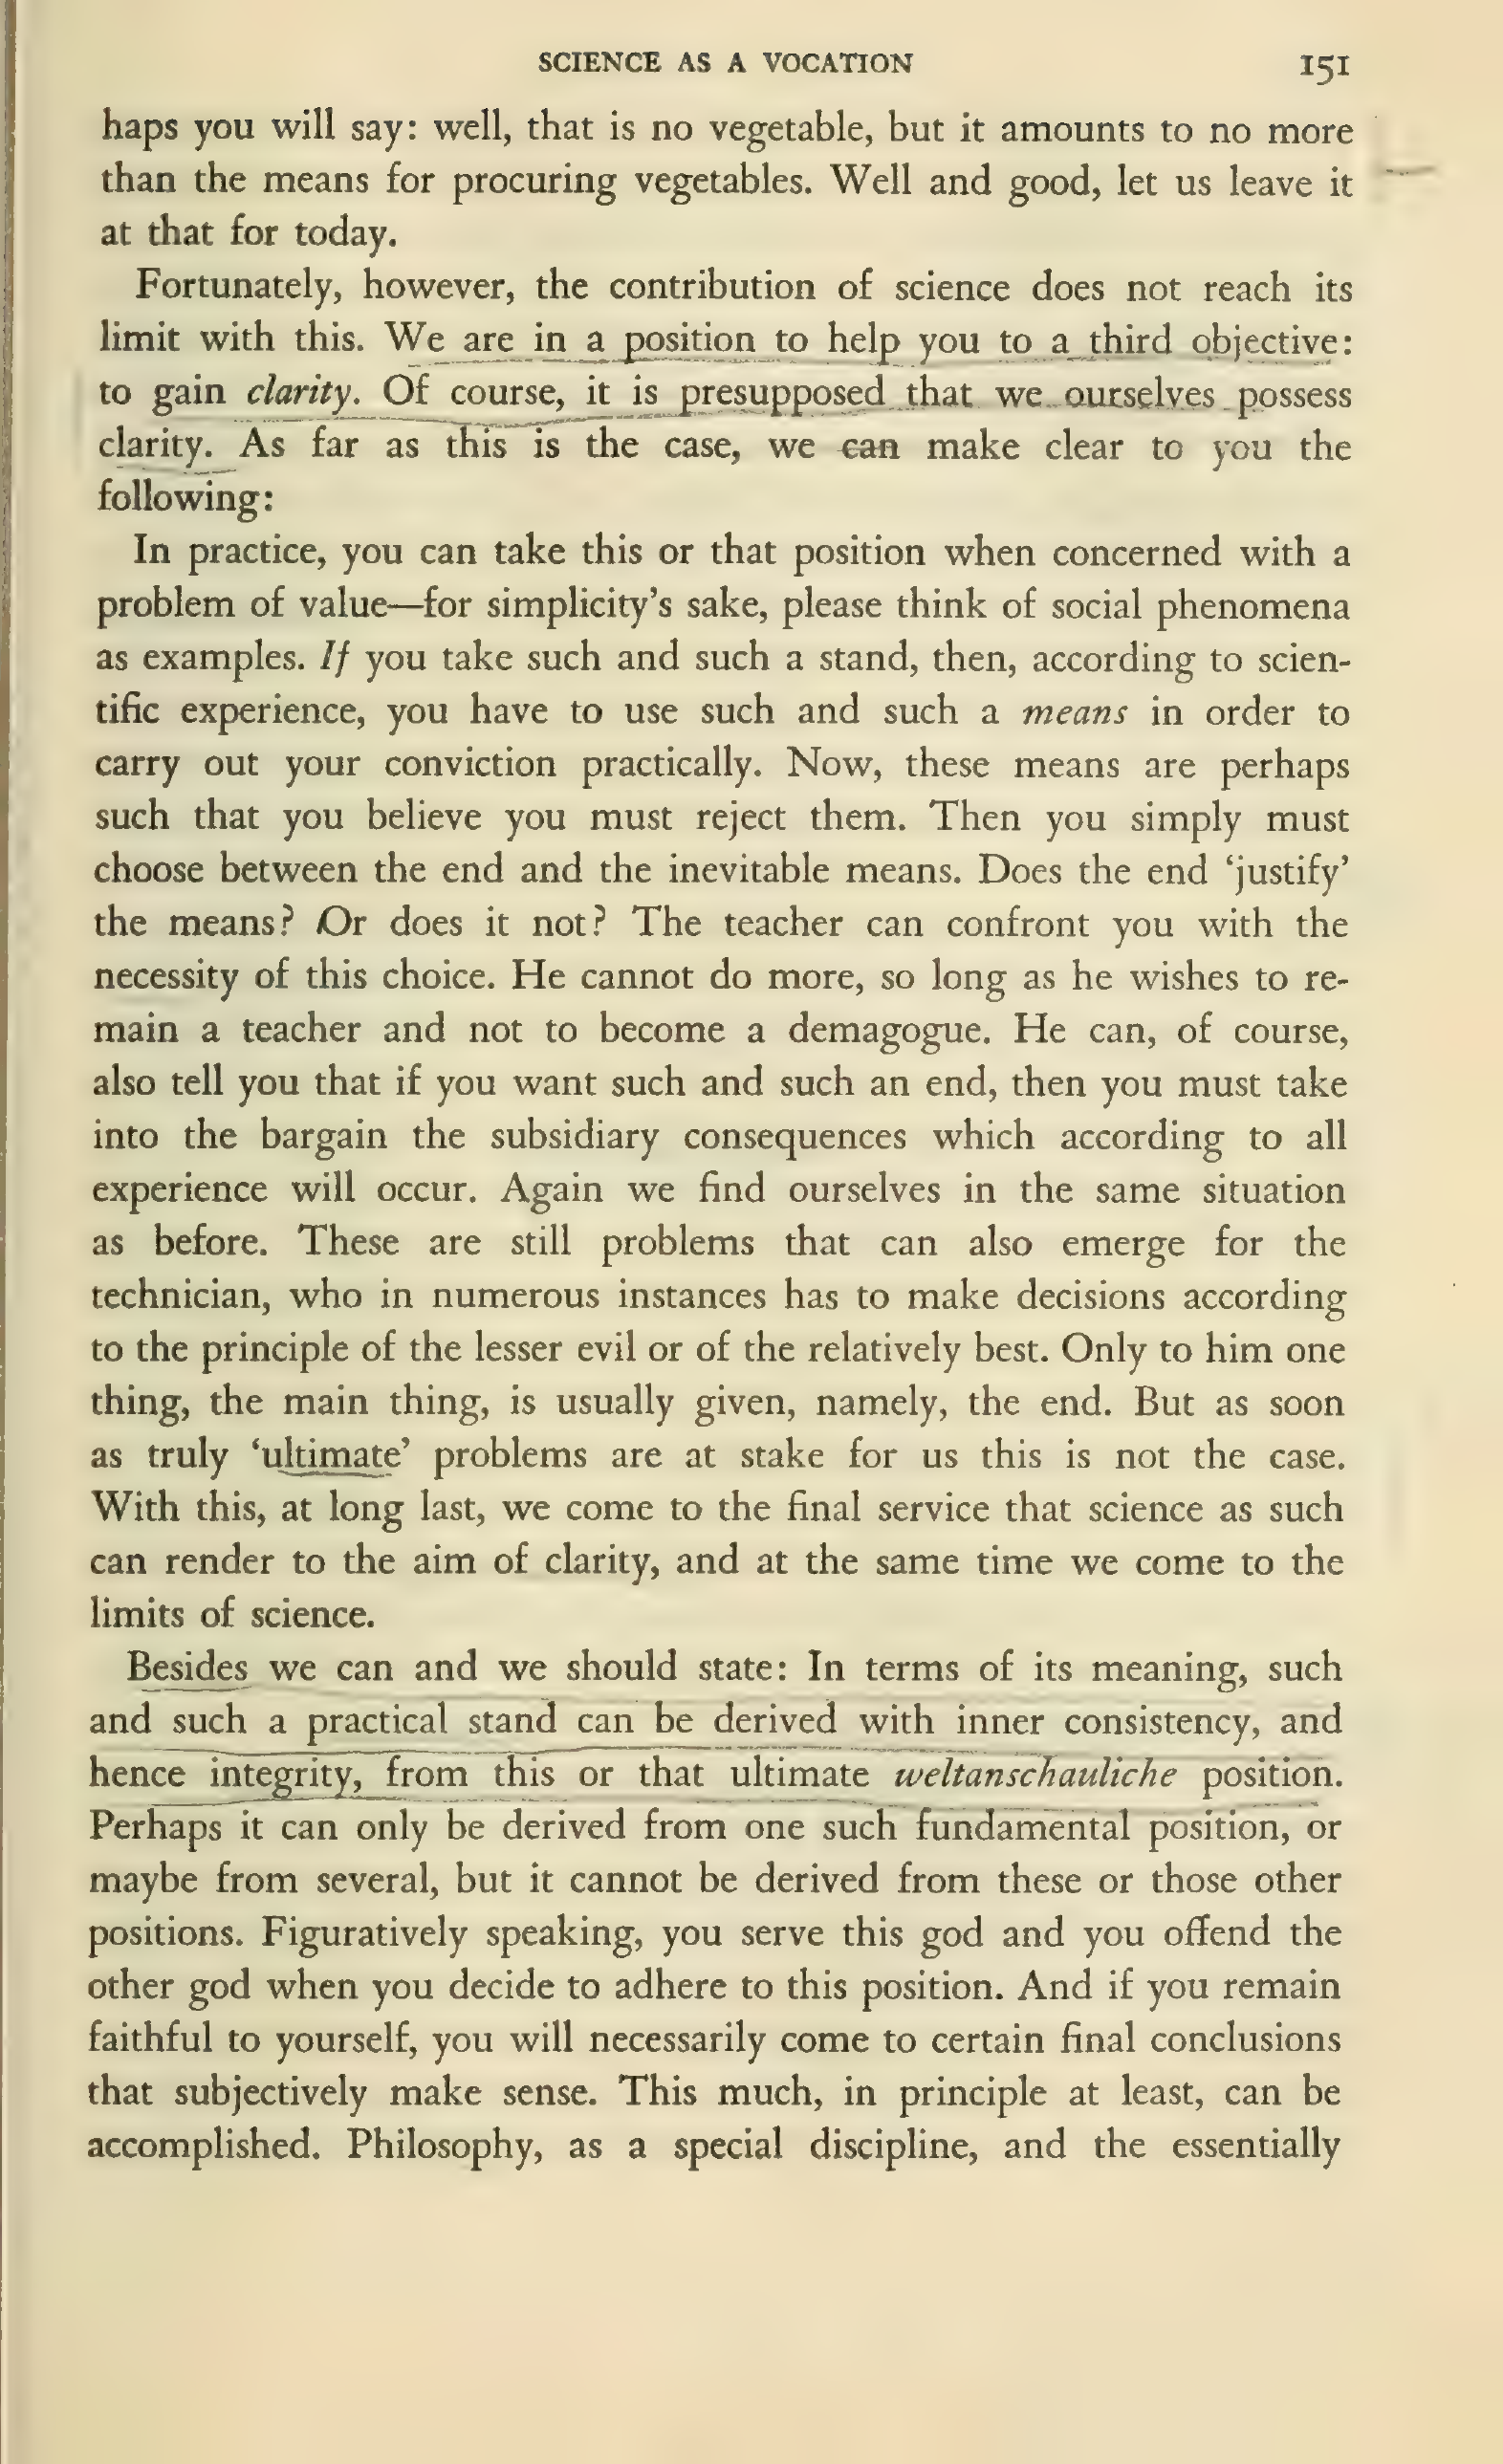 SCIENCE AS A VOCATION 151
haps you will say: well, that is no vegetable, but it amounts to no more
than the means for procuring vegetables. Well and good, let us leave it
at that for today.
Fortunately, however, the contribution of science does not reach its
limit with this. We are in a position to help you to a third objective:
to gain clarity. Of course, it is presupposed that we ourselves possess
clarity. As far as this is the case, we can make clear to you the
following:
In practice, you can take this or that position when concerned with a
problem of value—for simplicity's sake, please think of social phenomena
as examples. If you take such and such a stand, then, according to scien-
tific experience, you have to use such and such a means in order to
carry out your conviction practically. Now, these means are perhaps
such that you believe you must reject them. Then you simply must
choose between the end and the inevitable means. Does the end ‘justify’
the means? Or does it not? The teacher can confront you with the
necessity of this choice. He cannot do more, so long as he wishes to re-
main a teacher and not to become a demagogue. He can, of course,
also tell you that if you want such and such an end, then you must take
into the bargain the subsidiary consequences which according to all
experience will occur. Again we find ourselves in the same situation
as before. These are still problems that can also emerge for the
technician, who in numerous instances has to make decisions according
to the principle of the lesser evil or of the relatively best. Only to him one
thing, the main thing, is usually given, namely, the end. But as soon
as truly ‘ultimate’ problems are at stake for us this is not the case.
With this, at long last, we come to the final service that science as such
can render to the aim of clarity, and at the same time we come to the
limits of science.
Besides we can and we should state: In terms of its meaning, such
and such a practical stand can be derived with inner consistency, and
hence integrity, from this or that ultimate weltanschauliche position.
Perhaps it can only be derived from one such fundamental position, or
maybe from several, but it cannot be derived from these or those other
positions. Figuratively speaking, you serve this god and you offend the
other god when you decide to adhere to this position. And if you remain
faithful to yourself, you will necessarily come to certain final conclusions
that subjectively make sense. This much, in principle at least, can be
accomplished. Philosophy, as a special discipline, and the essentially